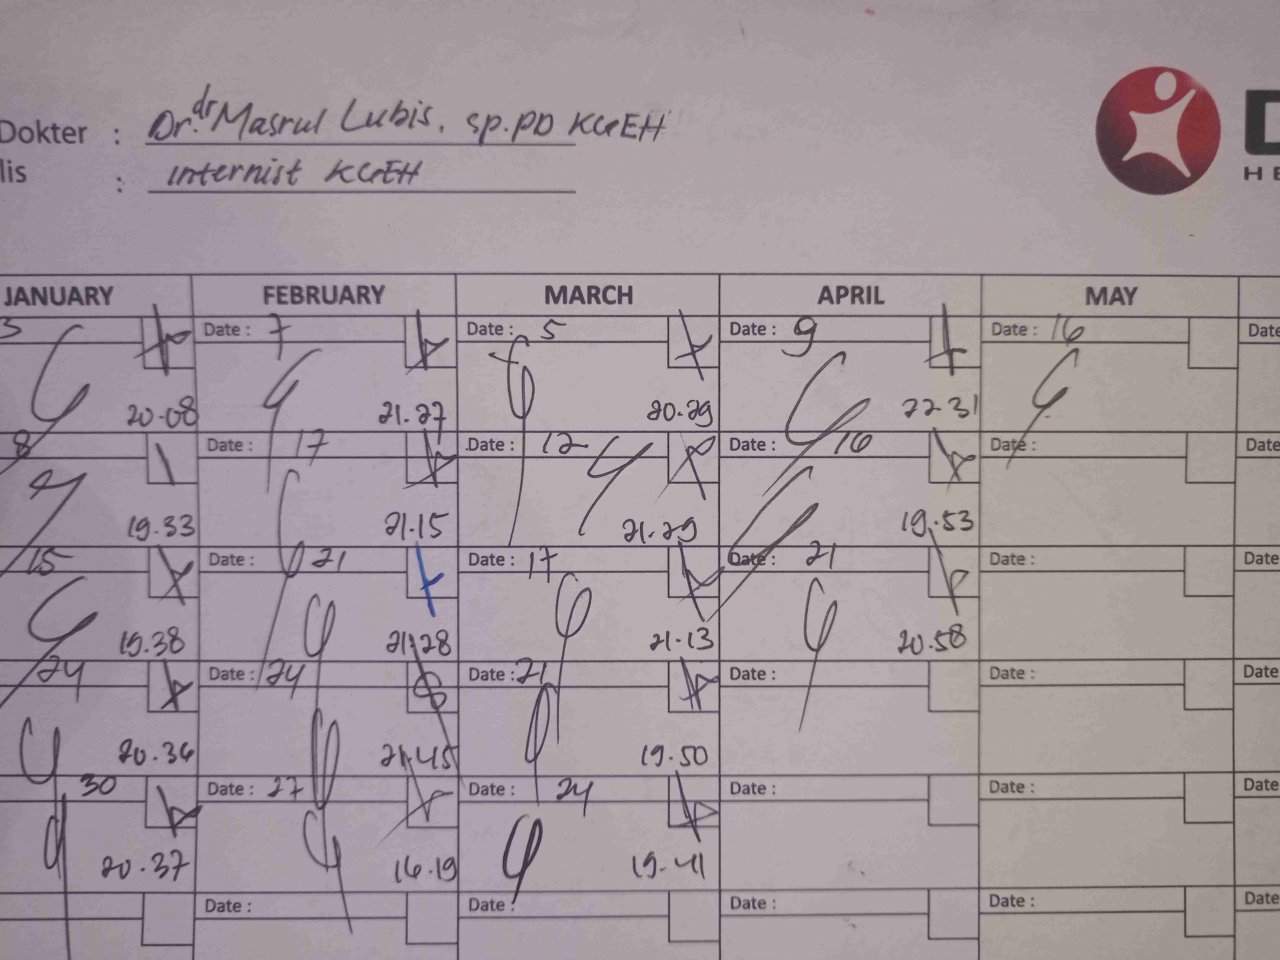 Dokter : Dr. dr Masrul Lubis, sp.PD KGEH
lis : Internist KGEH
D
HE
JANUARY FEBRUARY MARCH APRIL MAY
3 Date : 7 Date : 5 Date : 9 Date : 16 Date
20.08 21.27 20.29 22.31
8 Date : 17 Date : 12 Date : 16 Date : Date
19.33 21.15 21.29 19.53
15 Date : 21 Date : 17 Date : 21 Date : Date
19.38 21.28 21.13 20.58
24 Date : 24 Date : 21 Date : Date : Date
20.36 21.45 19.50
30 Date : 27 Date : 24 Date : Date : Date
20.37 16.19 19.41
Date : Date : Date : Date : Date